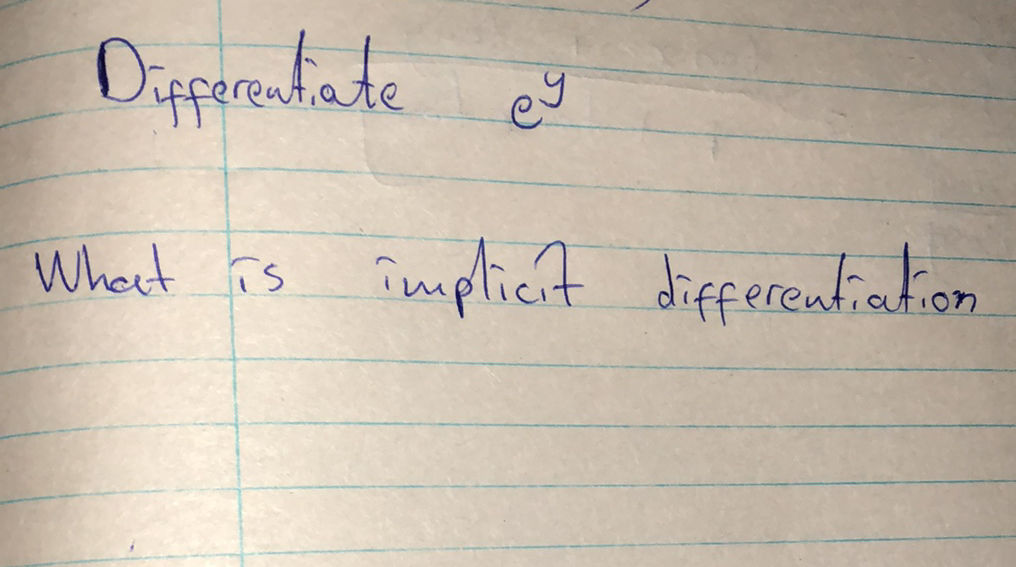 Differentiate e^y
What is implicit differentiation